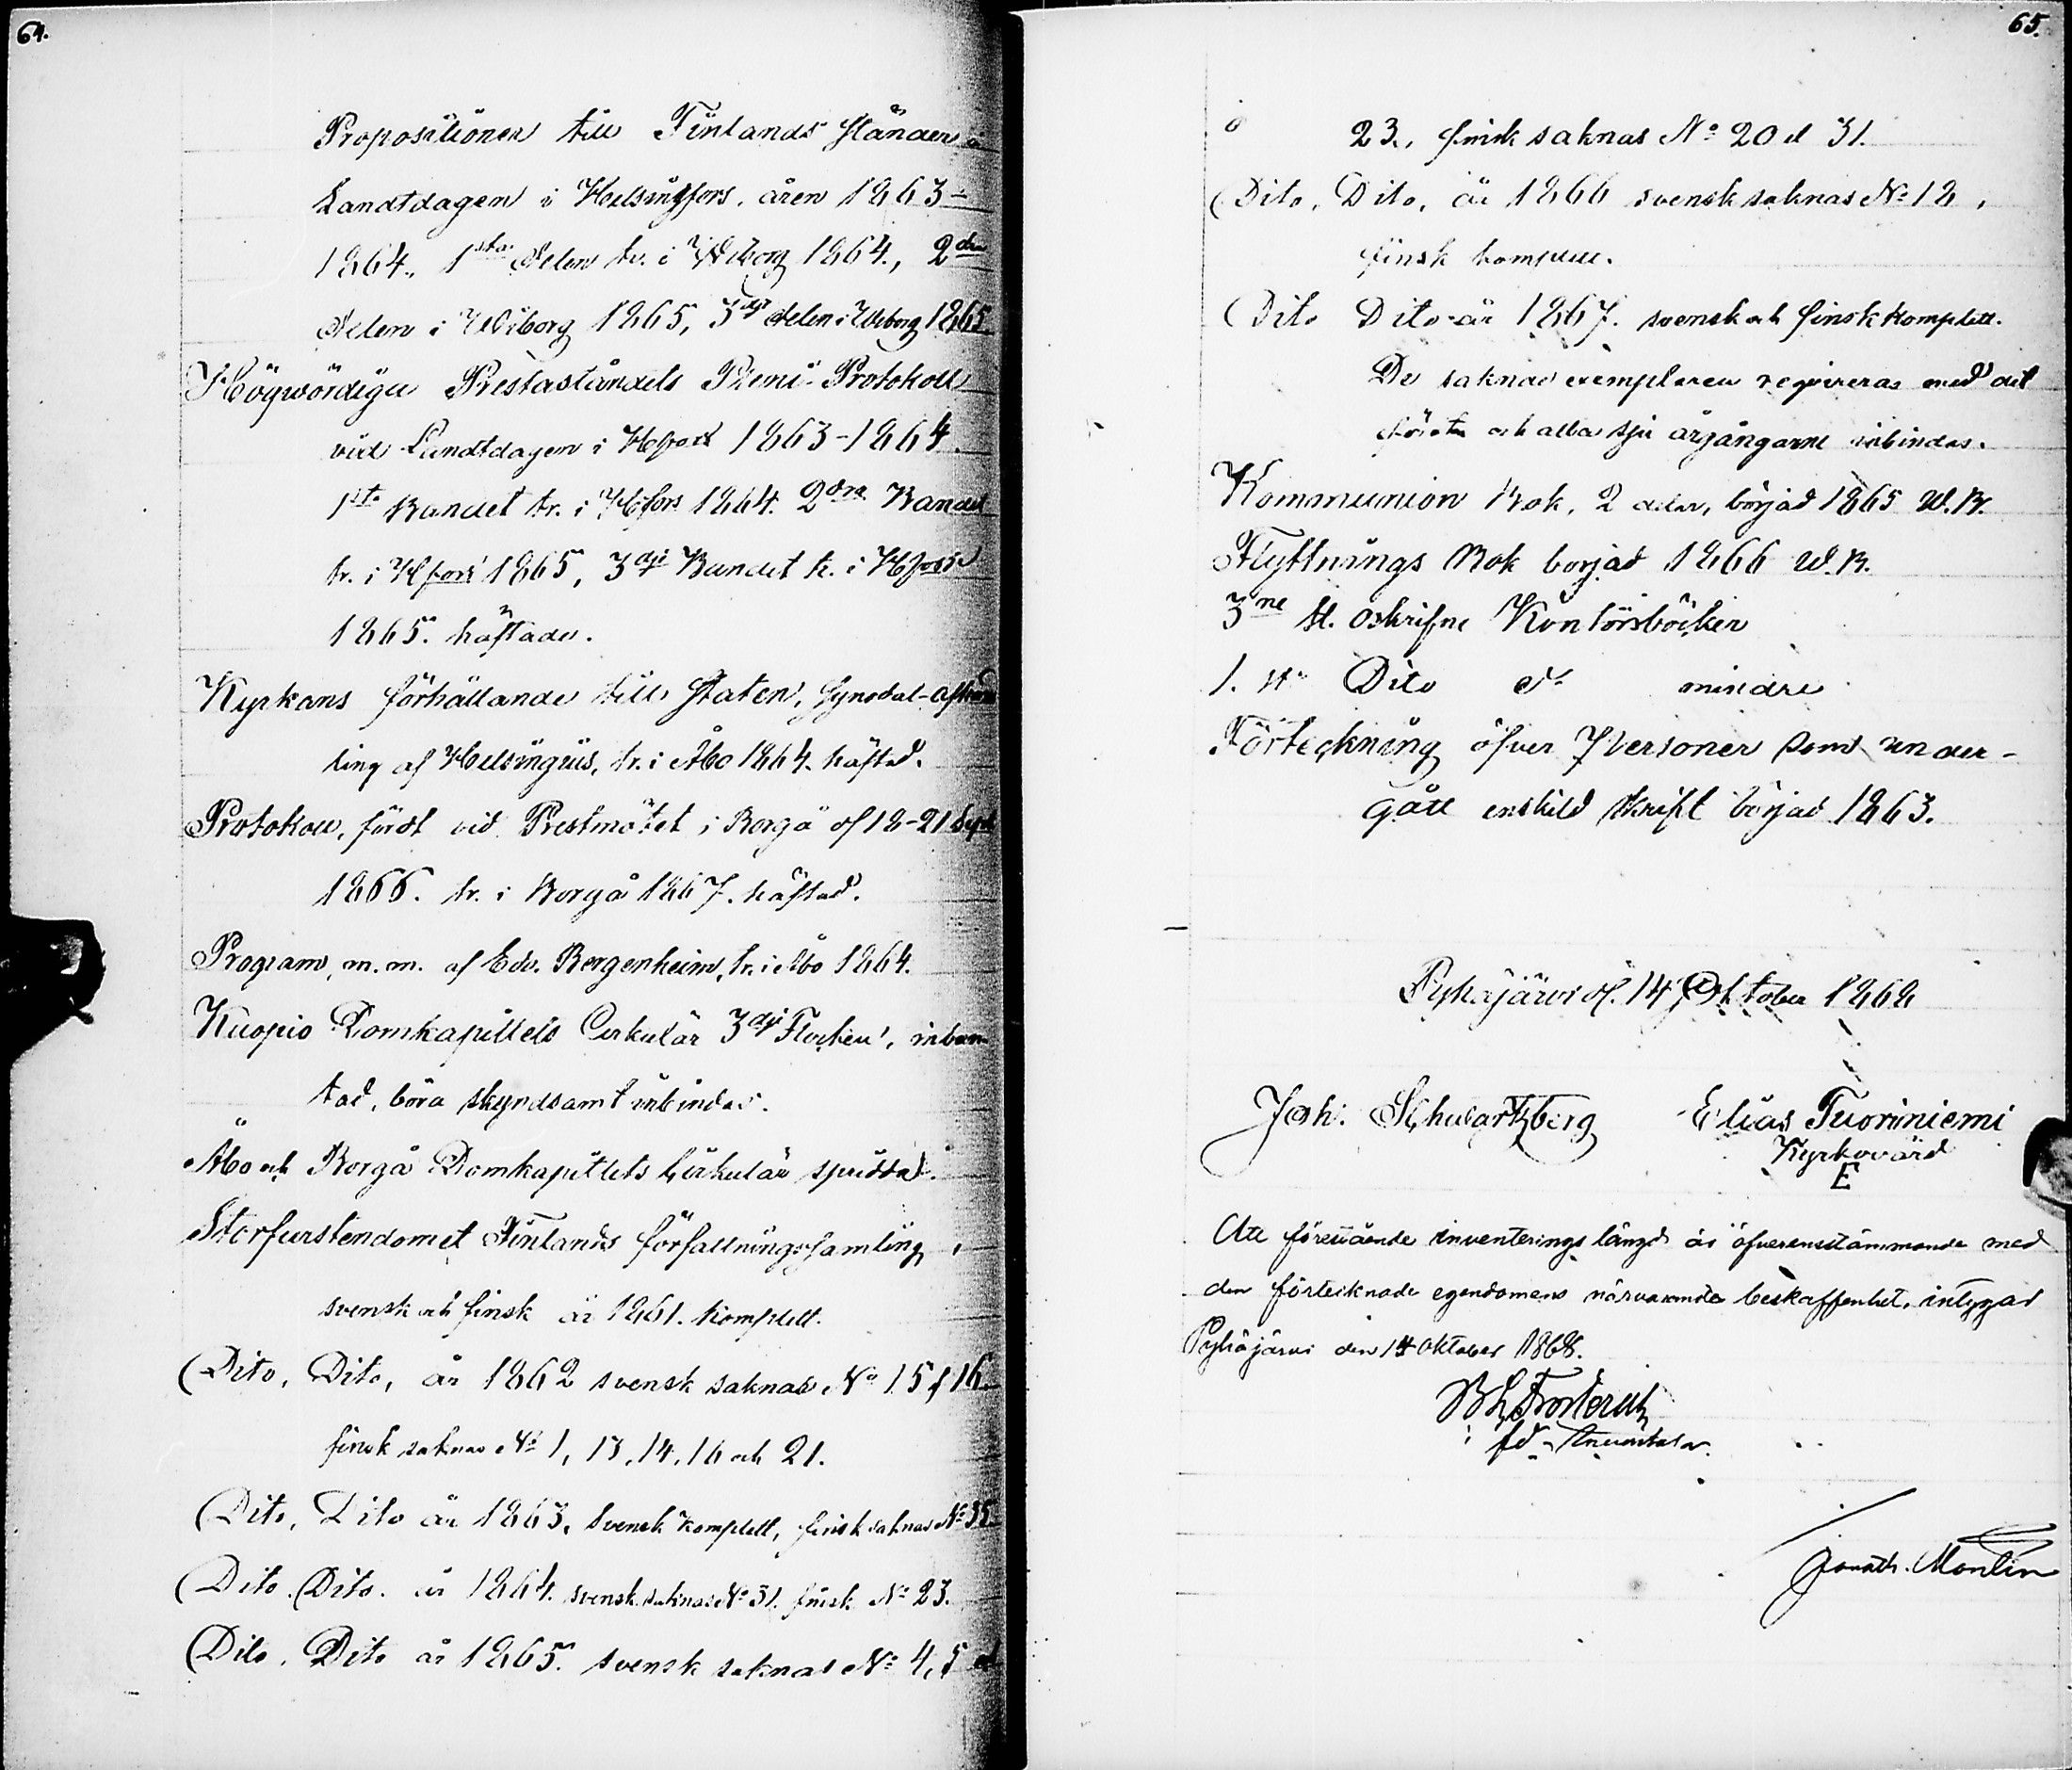 64.
Propositioner till Finlands Ständer å
Landtdagen i Helsingfors, åren 1863-
1864., 1sta Delen tr. i Wiborg 1864., 2dra
Delen i Wiborg 1865, 3dje delen i Wiborg 1865.
Högwördiga Prestaståndets Plemi-Protokoll
vid Landtdagen i Hfors 1863-1864.
1sta Bandet tr. i Hfors 1864. 2dra Bandet
tr. i Hfors 1865, 3dje Bandet tr. i Hfors
1865. häftade.
Kyrkans förhållande till Staten, Synodal-afhand
ling af Helsingius, tr. i Åbo 1864. häftad.
Protokoll, fördt vid Prestmötet i Borgå d. 18-21 Sept
1866. tr. i Borgå 1867. häftad.
Program, m.m. af Edv. Bergenheim, tr. i Åbo 1864.
Kuopio Domkapitlets Cirkulär 3dje Flocken, inbun
tad, böra skyndsamt inbindas.
Åbo och Borgå Domkapitlets Cirkulär spridda.
Storfurstendomet Finlands författningssamling,
svensk och finsk år 1861. komplett.
(Dito, Dito, år 1862 svensk saknas No 15, 16.
finsk saknas No 1, 13, 14, 16 och 21.
(Dito, Dito år 1863, Svensk komplett, finsk saknas No 35.
(Dito. Dito. år 1864. svensk saknas No 31. finsk No 23.
(Dito. Dito år 1865. svensk saknas No 4, 5 o
65.
23., finsk saknas No 20 o 31.
(Dito. Dito, år 1866 svensk saknas No 18,
finsk komplett.
(Dito Dito år 1867. svensk och finsk komplett.
De saknade exemplaren reqvireras med det
första och alla sju årgångarne inbindas.
Kommunion Bok, 2 delar, börjad 1865 W.B.
Flyttnings Bok börjad 1866 W.B.
3ne st. oskrifne Kontorsböcker
1. st. Dito do mindre
Förteckning öfver Personer som under-
gått enskild skrift börjad 1863.
Pyhäjärvi d. 14 Oktober 1868
Joh. Schwartzberg Elias Tuoriniemi
Kyrkovärd
E
Att förestående inventeringslängd är öfverensstämmande med
den förtecknade egendomens närvarande beskaffenhet, intygas
Pyhäjärvi den 14 Oktober 1868.
B L Frosterus
fd. Inventator.
Jonath. Montin